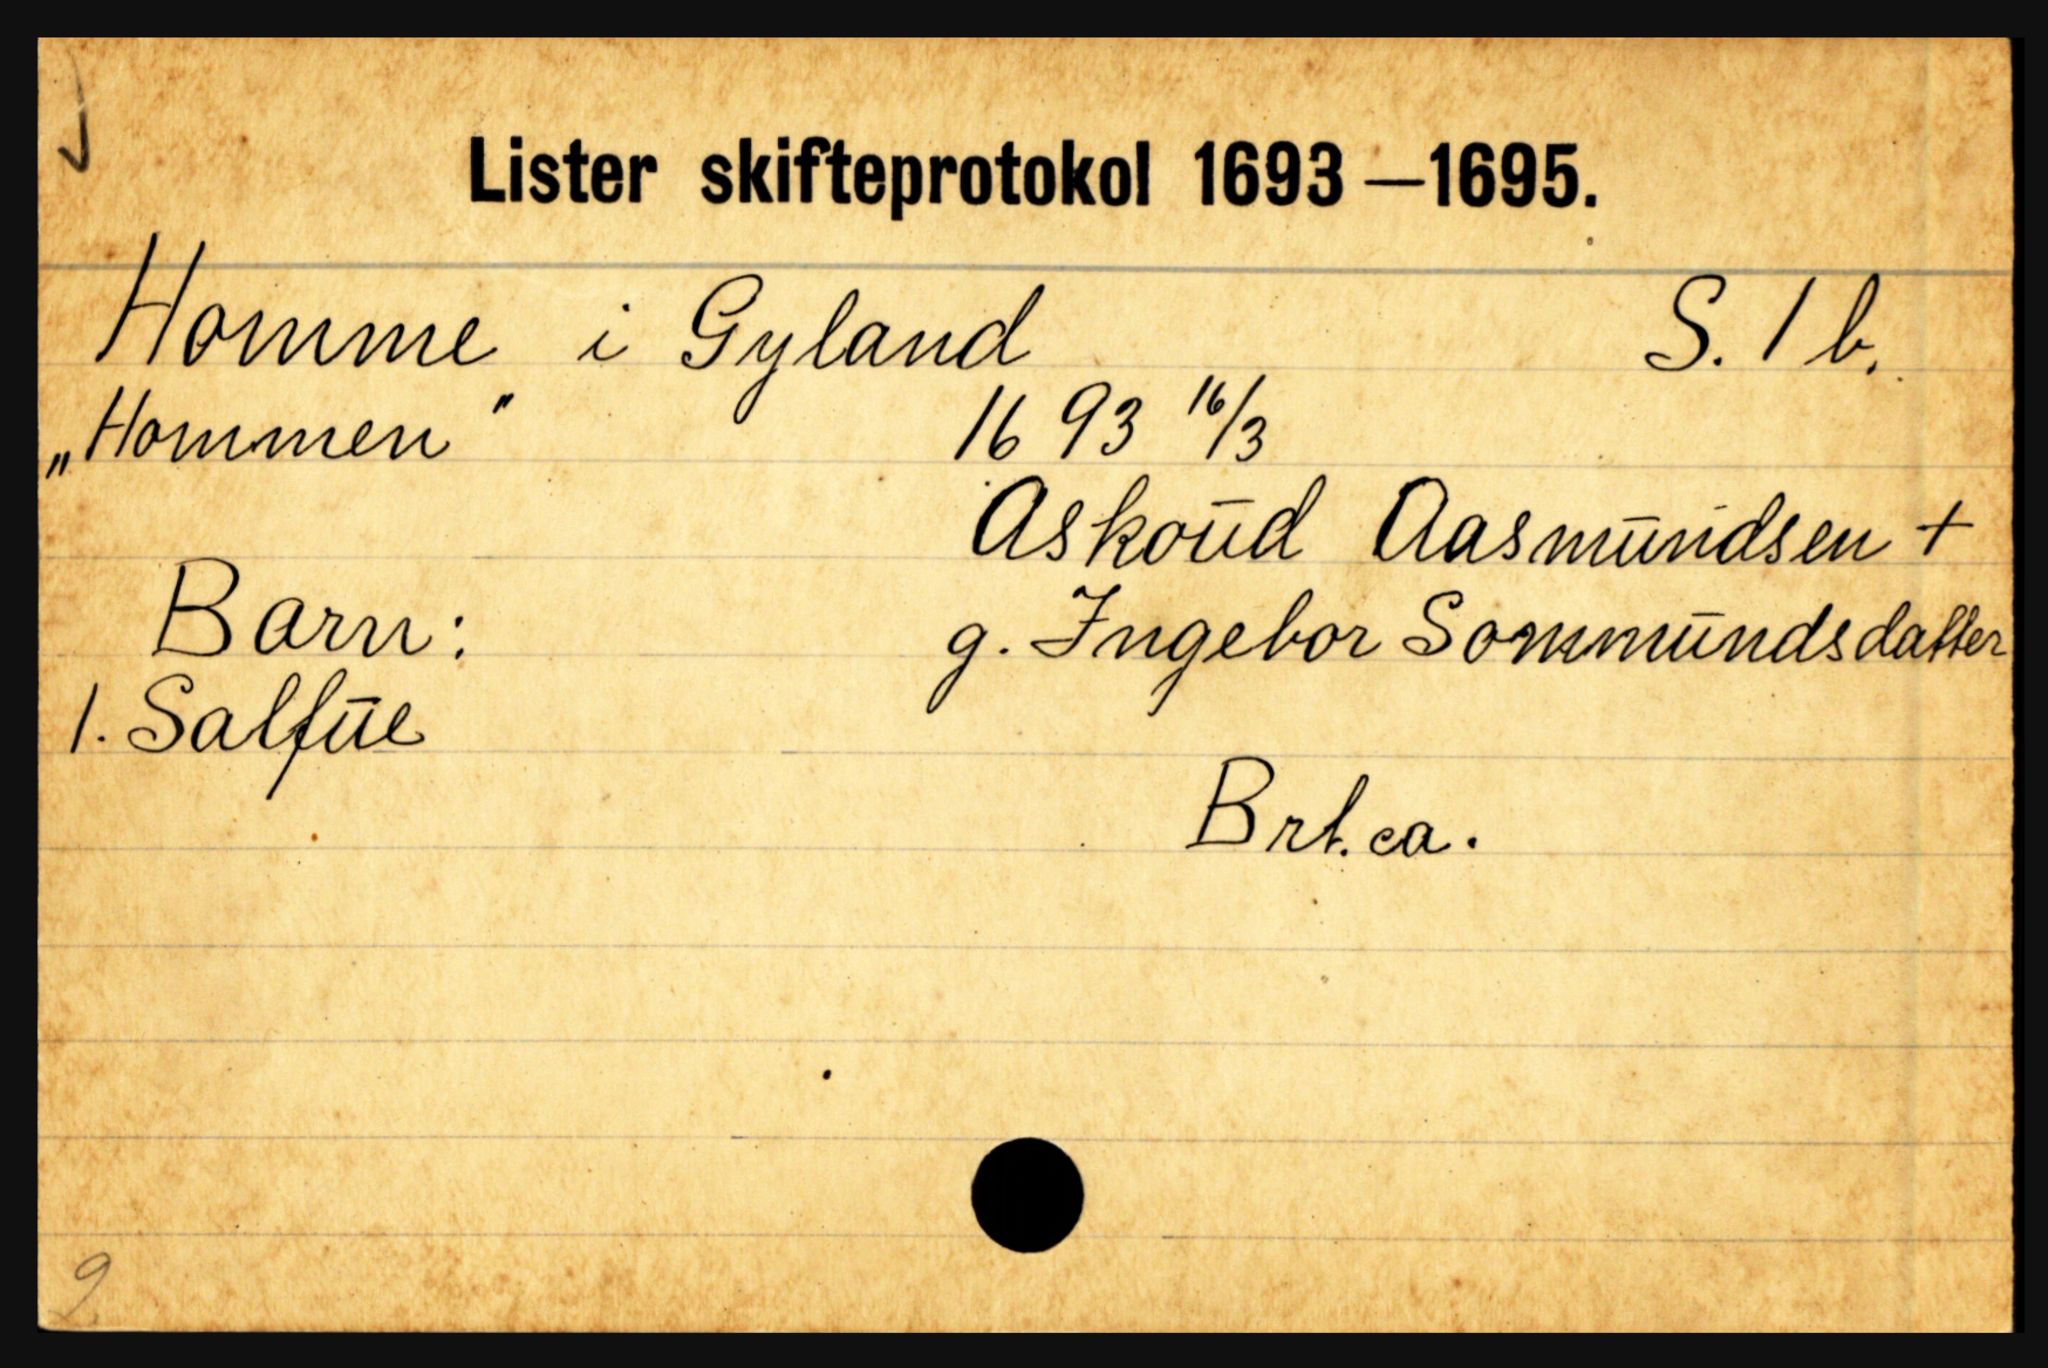 Lister skifteprotokol 1693—1695.
Homme i Gyland S. 1 b.
„Hommen" 1693 16/3
Askoūd Aasmūndsen +
Barn: g. Ingebor Sommūndsdatter
1. Salfūe
Brt. ca.
2